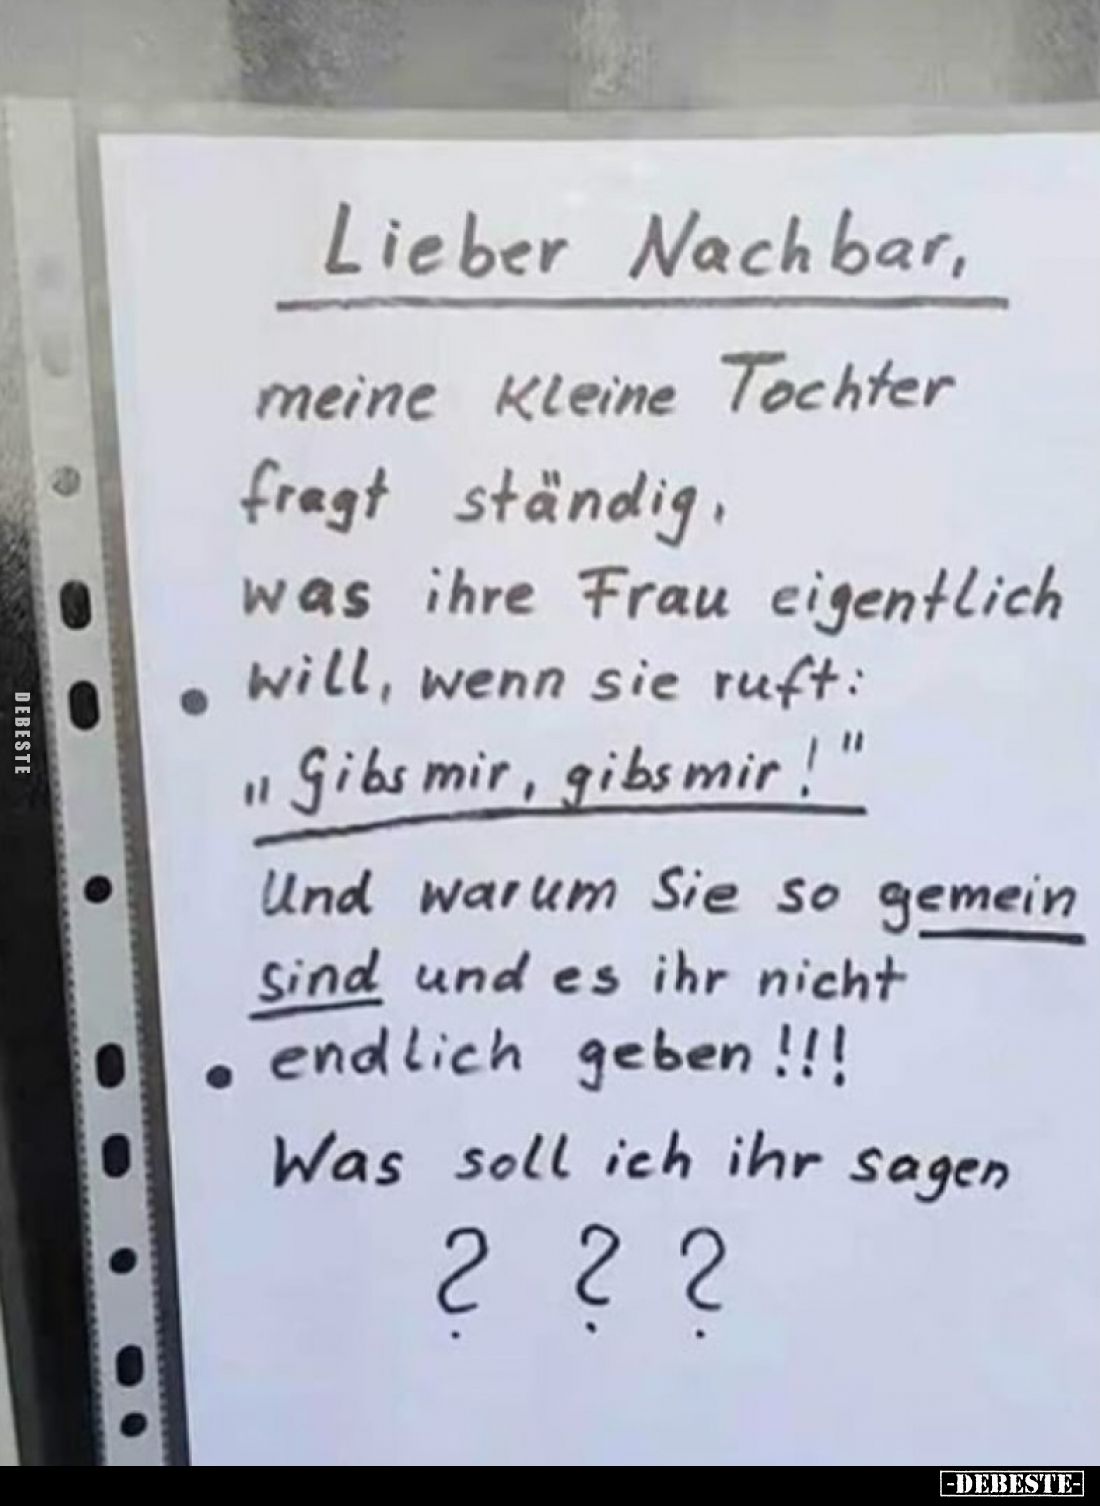 Lieber Nachbar,
meine kleine Tochter
fragt ständig,
was ihre Frau eigentlich
will, wenn sie ruft:
„Gibs mir, gibs mir!"
Und warum Sie so gemein
sind und es ihr nicht
endlich geben!!!
Was soll ich ihr sagen
? ? ?
DEBESTE
-DEBESTE-